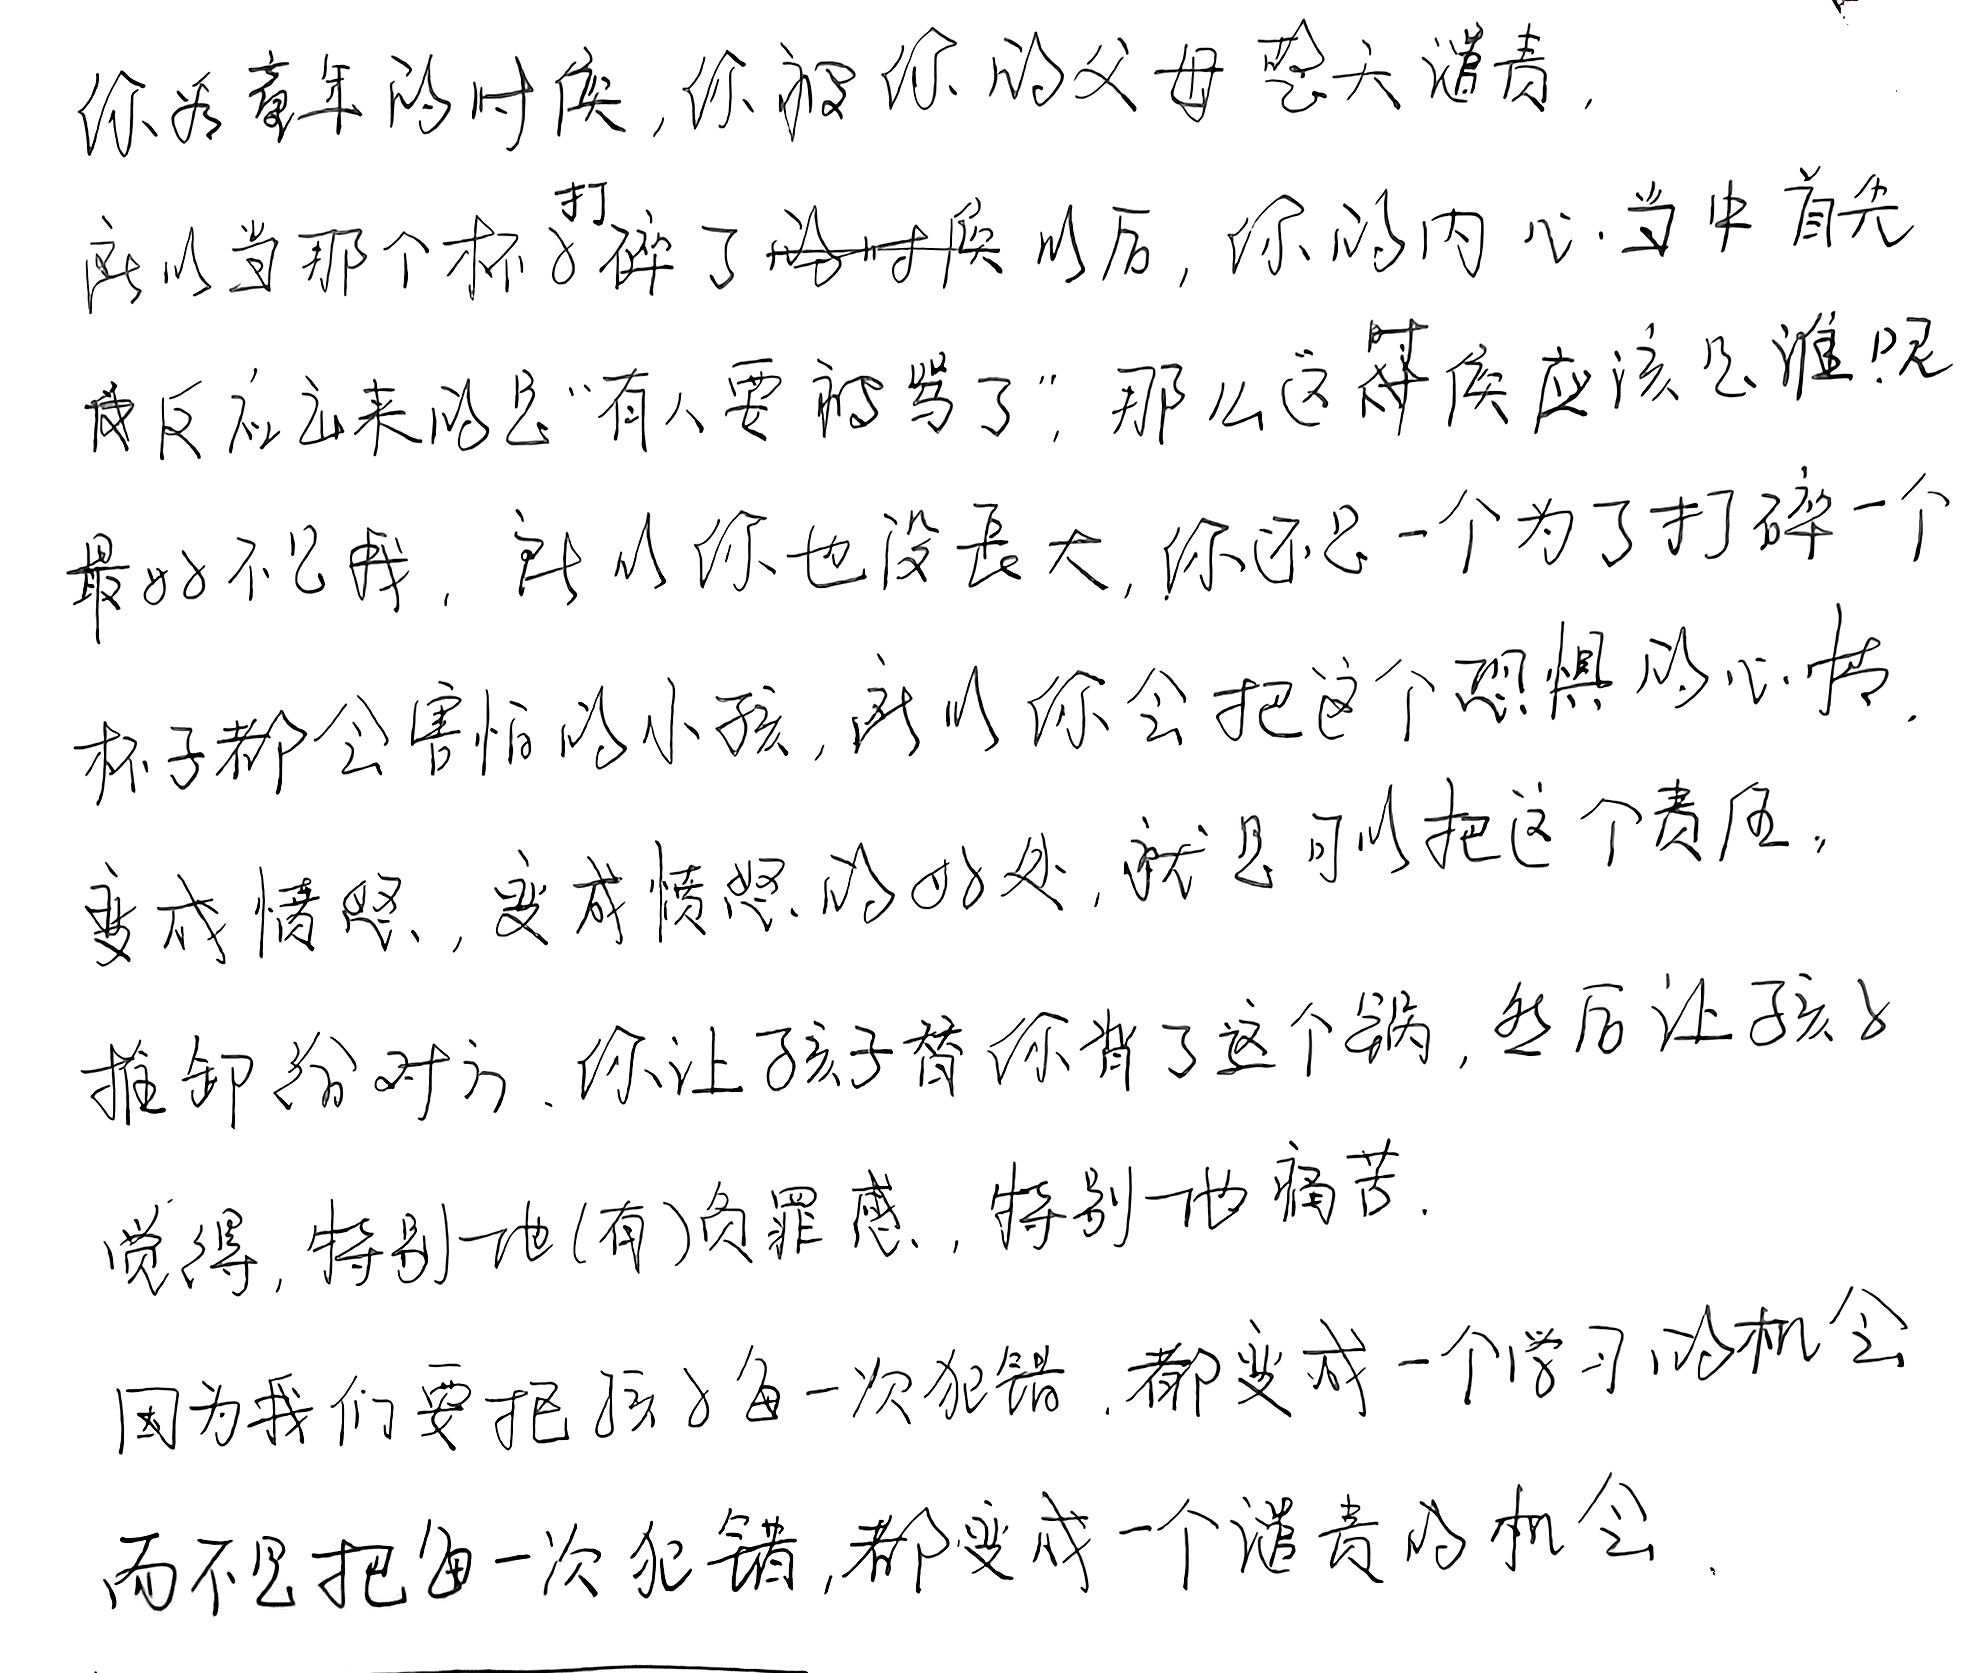 你为童年的时候,你被你的父母整天谴责.
所以当那个杯子打碎了以后,你的内心当中首先
反应出来的是“有人要被骂了”,那么这时候应该是谁呢
最好不是我,所以你也没长大,你还是一个为了打碎一个
杯子都会害怕的小孩,所以你会把这个恐惧的心情.
变成愤怒,变成愤怒的好处,就是可以把这个责任,
推卸给对方.你让孩子替你背了这个锅,然后让孩子
觉得,特别地(有)负罪感,特别地痛苦.
因为我们要把孩子每一次犯错.都变成一个学习的机会
而不是把每一次犯错,都变成一个谴责的机会.